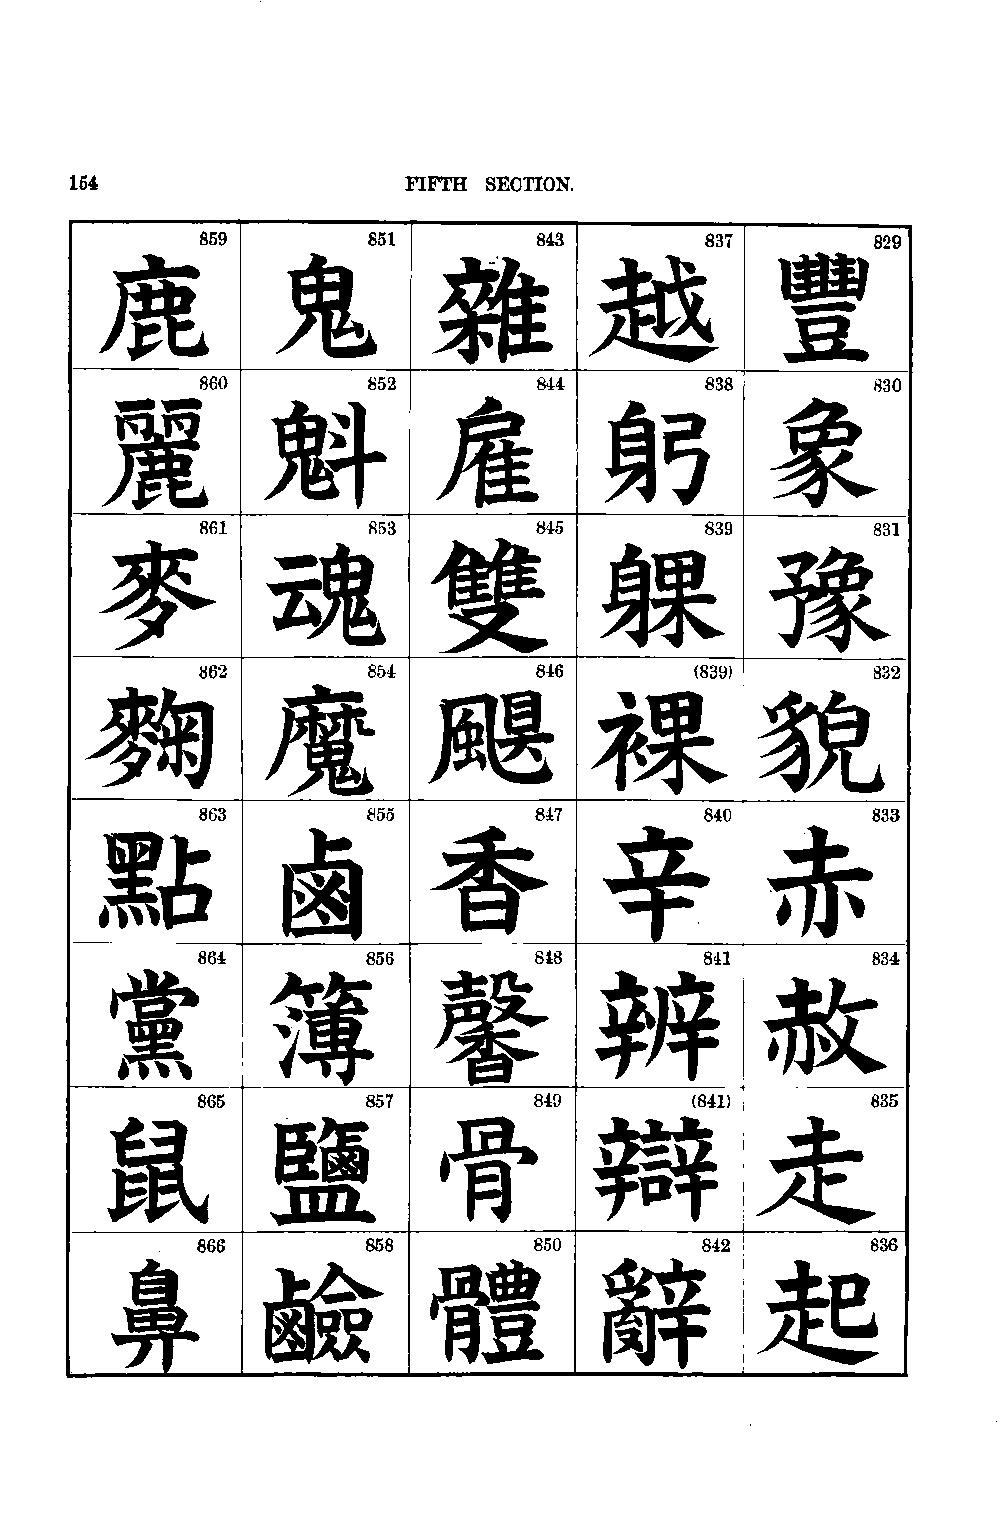 154
FIFTH SECTION.
829
豐
830
象
831
豫
832
貌
833
赤
834
赦
835
走
836
起
837
越
838
躬
839
躶
(839)
裸
840
辛
841
辨
(841)
辯
842
辭
843
雜
844
雇
845
雙
846
颶
847
香
848
馨
849
骨
850
體
851
鬼
852
魁
853
魂
854
魔
855
鹵
856
簿
857
鹽
858
鹼
859
鹿
860
麗
861
麥
862
麴
863
點
864
黨
865
鼠
866
鼻